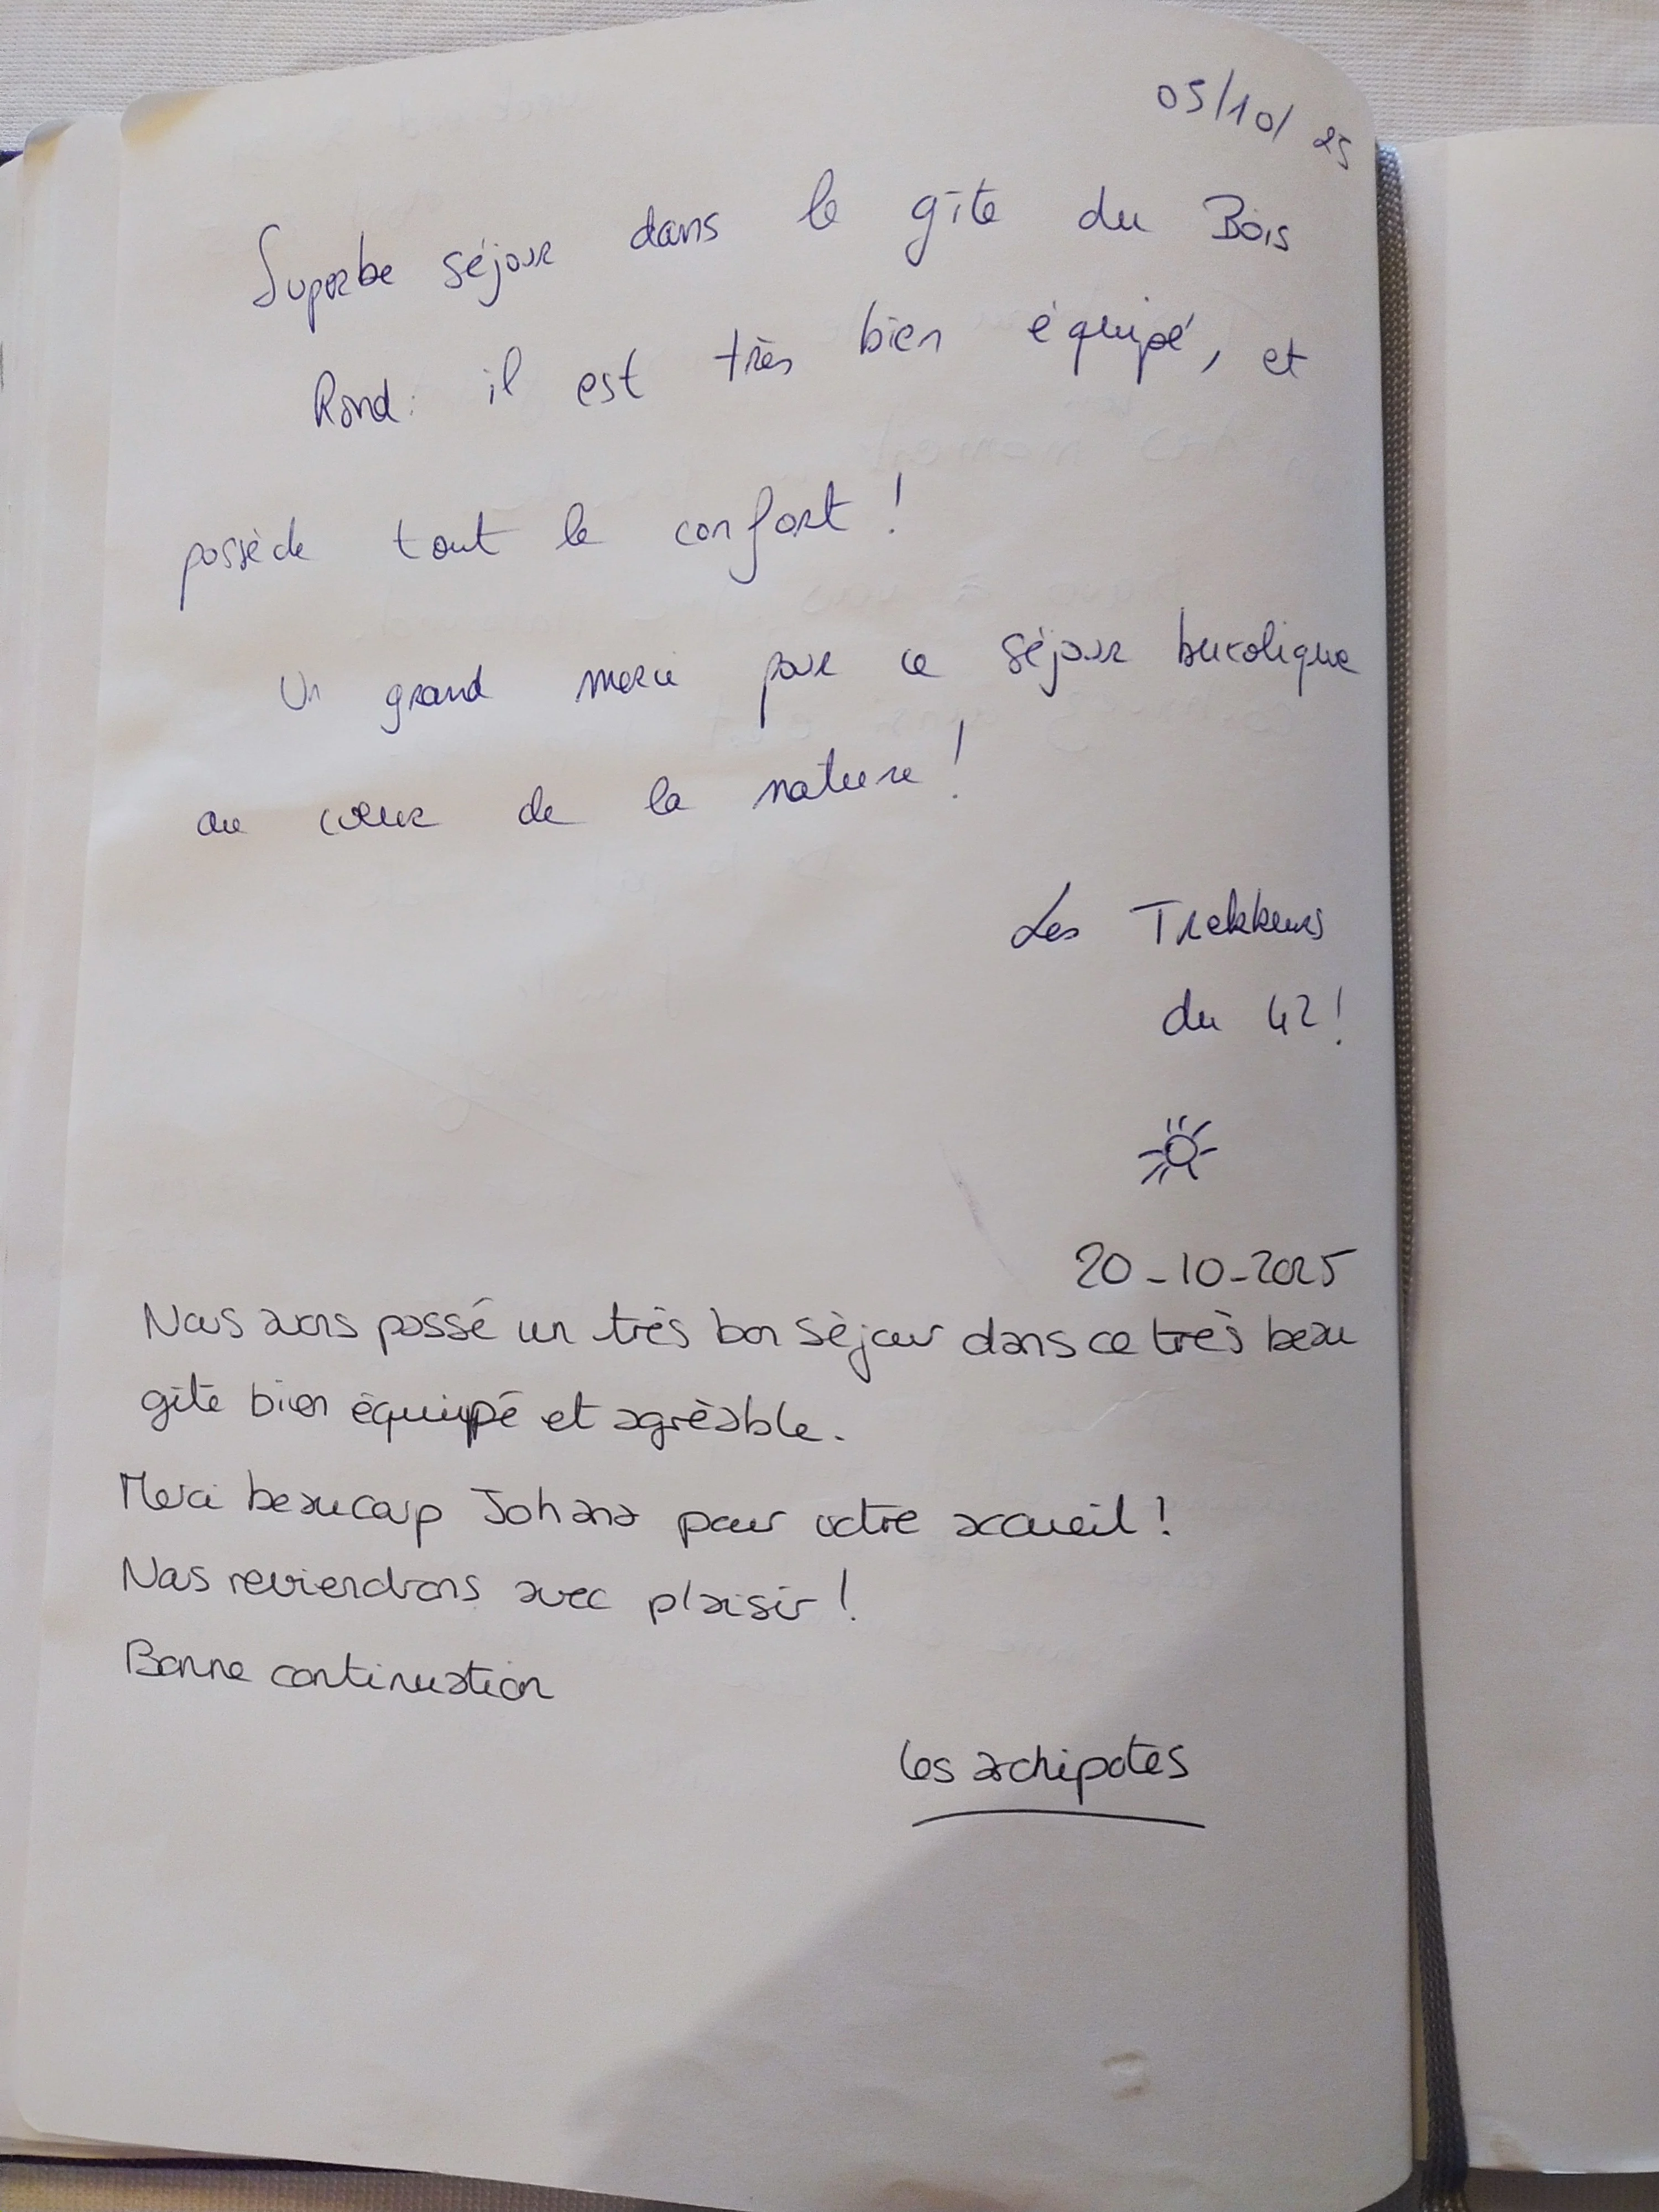 05/10/25
Superbe séjour dans le gîte du Bois
Rond: il est très bien équipé, et
possède tout le confort !
Un grand merci pour ce séjour bucolique
au cœur de la nature !
Les Trekkeurs
du 42 !
20-10-2025
Nous avons passé un très bon séjour dans ce très beau
gîte bien équipé et agréable.
Merci beaucoup Johana pour votre accueil !
Nous reviendrons avec plaisir !
Bonne continuation
Les achipotes